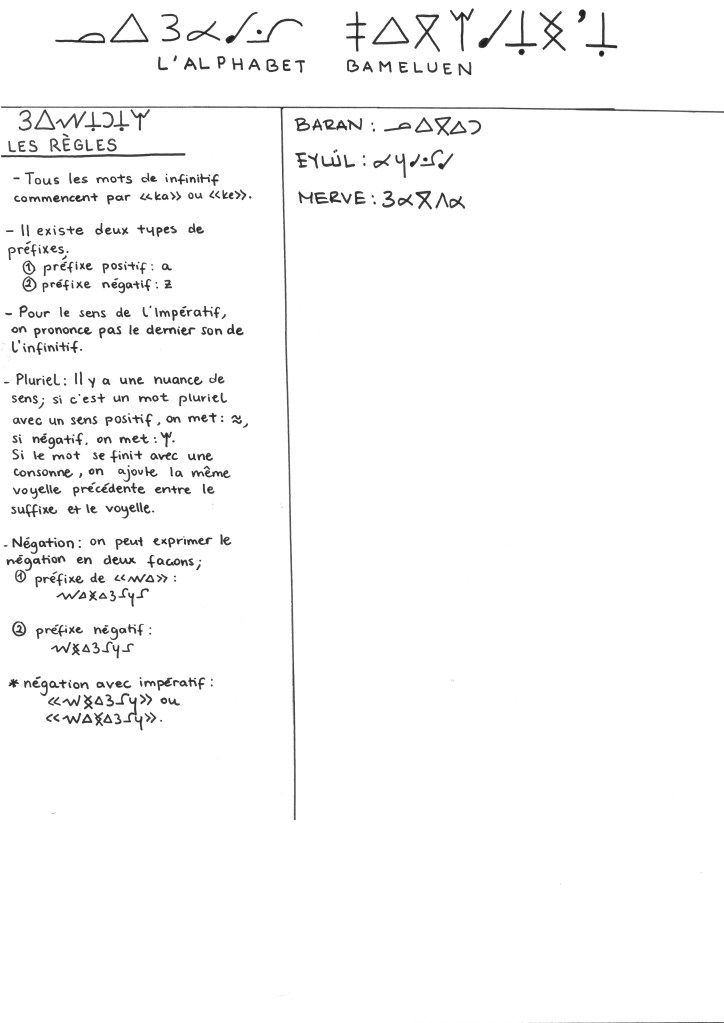 L'ALPHABET BAMELUEN
LES RÈGLES
- Tous les mots de infinitif
commencent par «ka» ou «ke».
- Il existe deux types de
préfixes.
① préfixe positif: a
② préfixe négatif: z
- Pour le sens de L'Impératif,
on prononce pas le dernier son de
L'infinitif.
- Pluriel: Il y a une nuance de
sens; si c'est un mot pluriel
avec un sens positif, on met: ≈,
si négatif, on met:
Si le mot se finit avec une
consonne, on ajoute la même
voyelle précédente entre le
suffixe et le voyelle.
- Négation: on peut exprimer le
négation en deux facons;
① préfixe de
② préfixe négatif:
* négation avec impératif:
ou
BARAN:
EYLÜL:
MERVE: